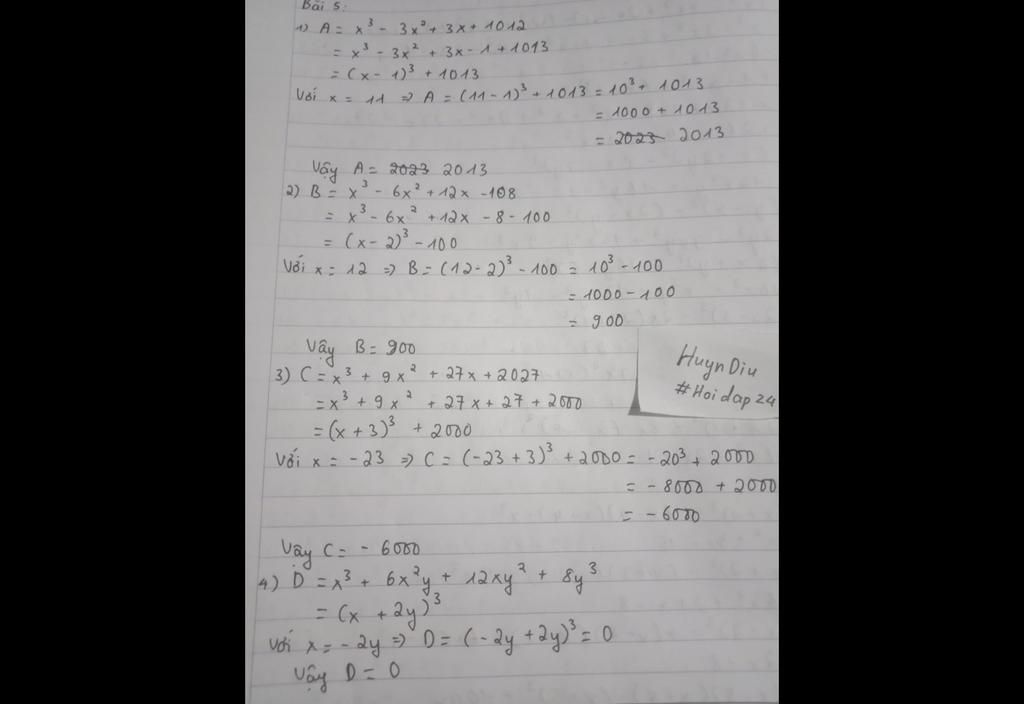 Bài 5:
1) A = x³ - 3x² + 3x + 1012
= x³ - 3x² + 3x - 1 + 1013
= (x - 1)³ + 1013
Với x = 11 => A = (11 - 1)³ + 1013 = 10³ + 1013
= 1000 + 1013
= 2023 2013
Vậy A = 2023 2013
2) B = x³ - 6x² + 12x - 108
= x³ - 6x² + 12x - 8 - 100
= (x - 2)³ - 100
Với x = 12 => B = (12 - 2)³ - 100 = 10³ - 100
= 1000 - 100
= 900
Vậy B = 900
3) C = x³ + 9x² + 27x + 2027
= x³ + 9x² + 27x + 27 + 2000
= (x + 3)³ + 2000
Với x = -23 => C = (-23 + 3)³ + 2000 = -20³ + 2000
= -8000 + 2000
= -6000
Vậy C = -6000
4) D = x³ + 6x²y + 12xy² + 8y³
= (x + 2y)³
Với x = -2y => D = (-2y + 2y)³ = 0
Vậy D = 0
Huyn Diu
#Hoidap24